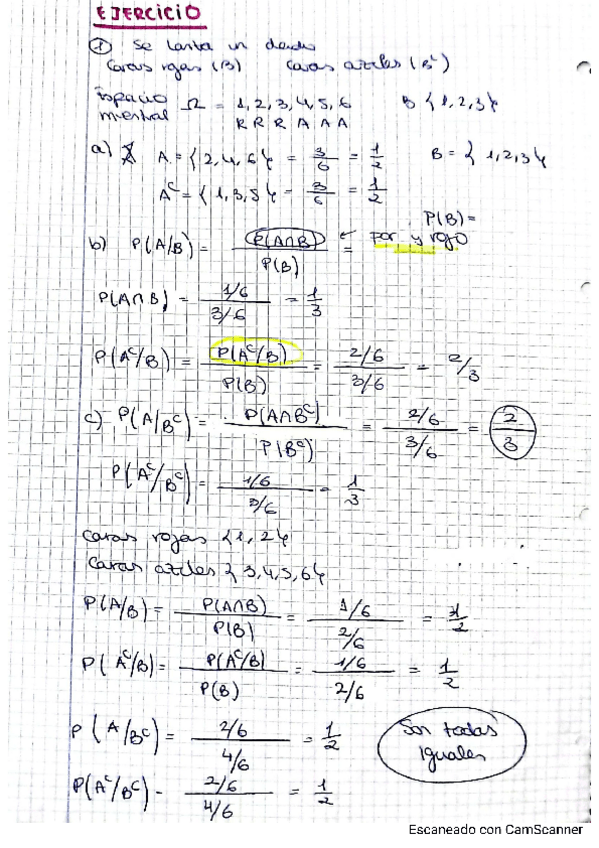 EJERCICIO
① Se lanza un dado
Caras rojas (B) Caras azules (Bᶜ)
Espacio muestral Ω = 1, 2, 3, 4, 5, 6 B { 1, 2, 3 }
R R R A A A
a) A = { 2, 4, 6 } = 3/6 = 1/2 B = { 1, 2, 3 }
Aᶜ = { 1, 3, 5 } = 3/6 = 1/2
P(B) =
b) P(A/B) = P(A∩B) / P(B) = ← par y rojo
P(A∩B) = 1/6 / 3/6 = 1/3
P(Aᶜ/B) = P(Aᶜ/B) / P(B) = 2/6 / 3/6 = 2/3
c) P(A/Bᶜ) = P(A∩Bᶜ) / P(Bᶜ) = 2/6 / 3/6 = 2/3
P(Aᶜ/Bᶜ) = 1/6 / 3/6 = 1/3
Caras rojas { 1, 2 }
Caras azules { 3, 4, 5, 6 }
P(A/B) = P(A∩B) / P(B) = 1/6 / 2/6 = 1/2
P(Aᶜ/B) = P(Aᶜ/B) / P(B) = 1/6 / 2/6 = 1/2
P(A/Bᶜ) = 2/6 / 4/6 = 1/2
Son todas
iguales
P(Aᶜ/Bᶜ) - 2/6 / 4/6 = 1/2
Escaneado con CamScanner